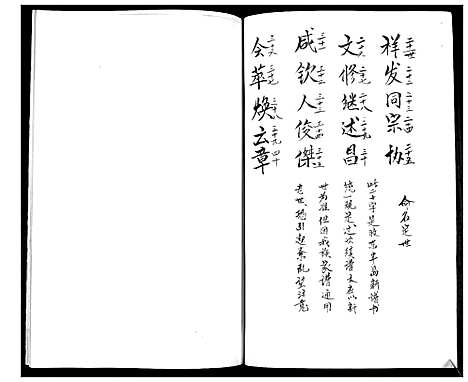 祥发同宗协
二十一世 二十二 二十三 二十四 二十五
文修继述昌
二十六 二十七 二十八 二十九 三十
咸钦人俊傑
三十一 三十二 三十三 三十四 三十五
会萃焕云章
三十六 三十七 三十八 三十九 四十
命名定世
此二十字是胶东半岛新谱书
统一规定这次续谱大名以新
世为准但因我族家谱通用
老世 引起紊乱望注意